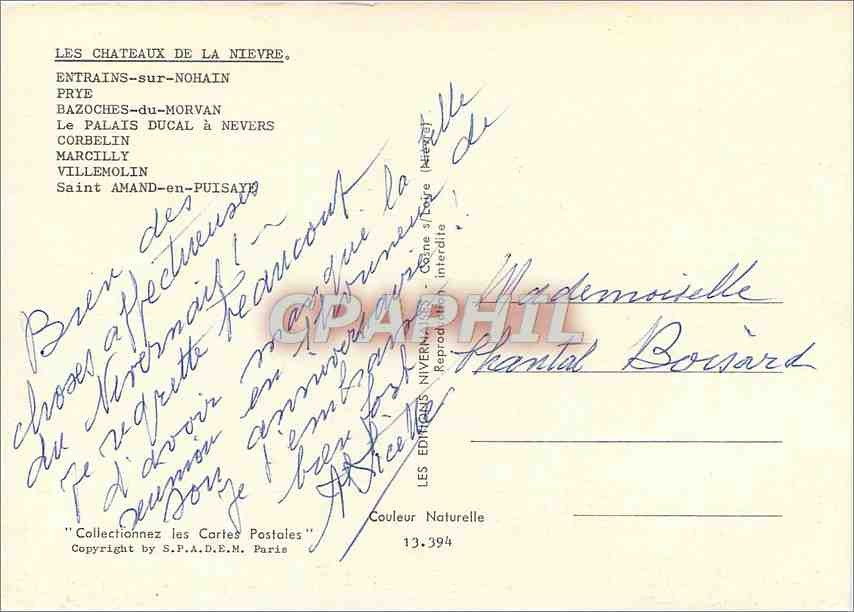 LES CHATEAUX DE LA NIEVRE.
ENTRAINS-sur-NOHAIN
PRYE
BAZOCHES-du-MORVAN
Le PALAIS DUCAL à NEVERS
CORBELIN
MARCILLY
VILLEMOLIN
Saint AMAND-en-PUISAYE
Bien des
choses affectueuses
du Nivernais! -
Je regrette beaucoup
d'avoir manqué la
réunion en l'honneur de
son anniversaire!
Je t'embrasse
bien fort
LES EDITIONS NIVERNAISES - Cosne s/Loire (Nièvre)
Reproduction interdite
Mademoiselle
Chantal Boisard
CPAPHIL
"Collectionnez les Cartes Postales"
Copyright by S.P.A.D.E.M. Paris
Couleur Naturelle
13.394